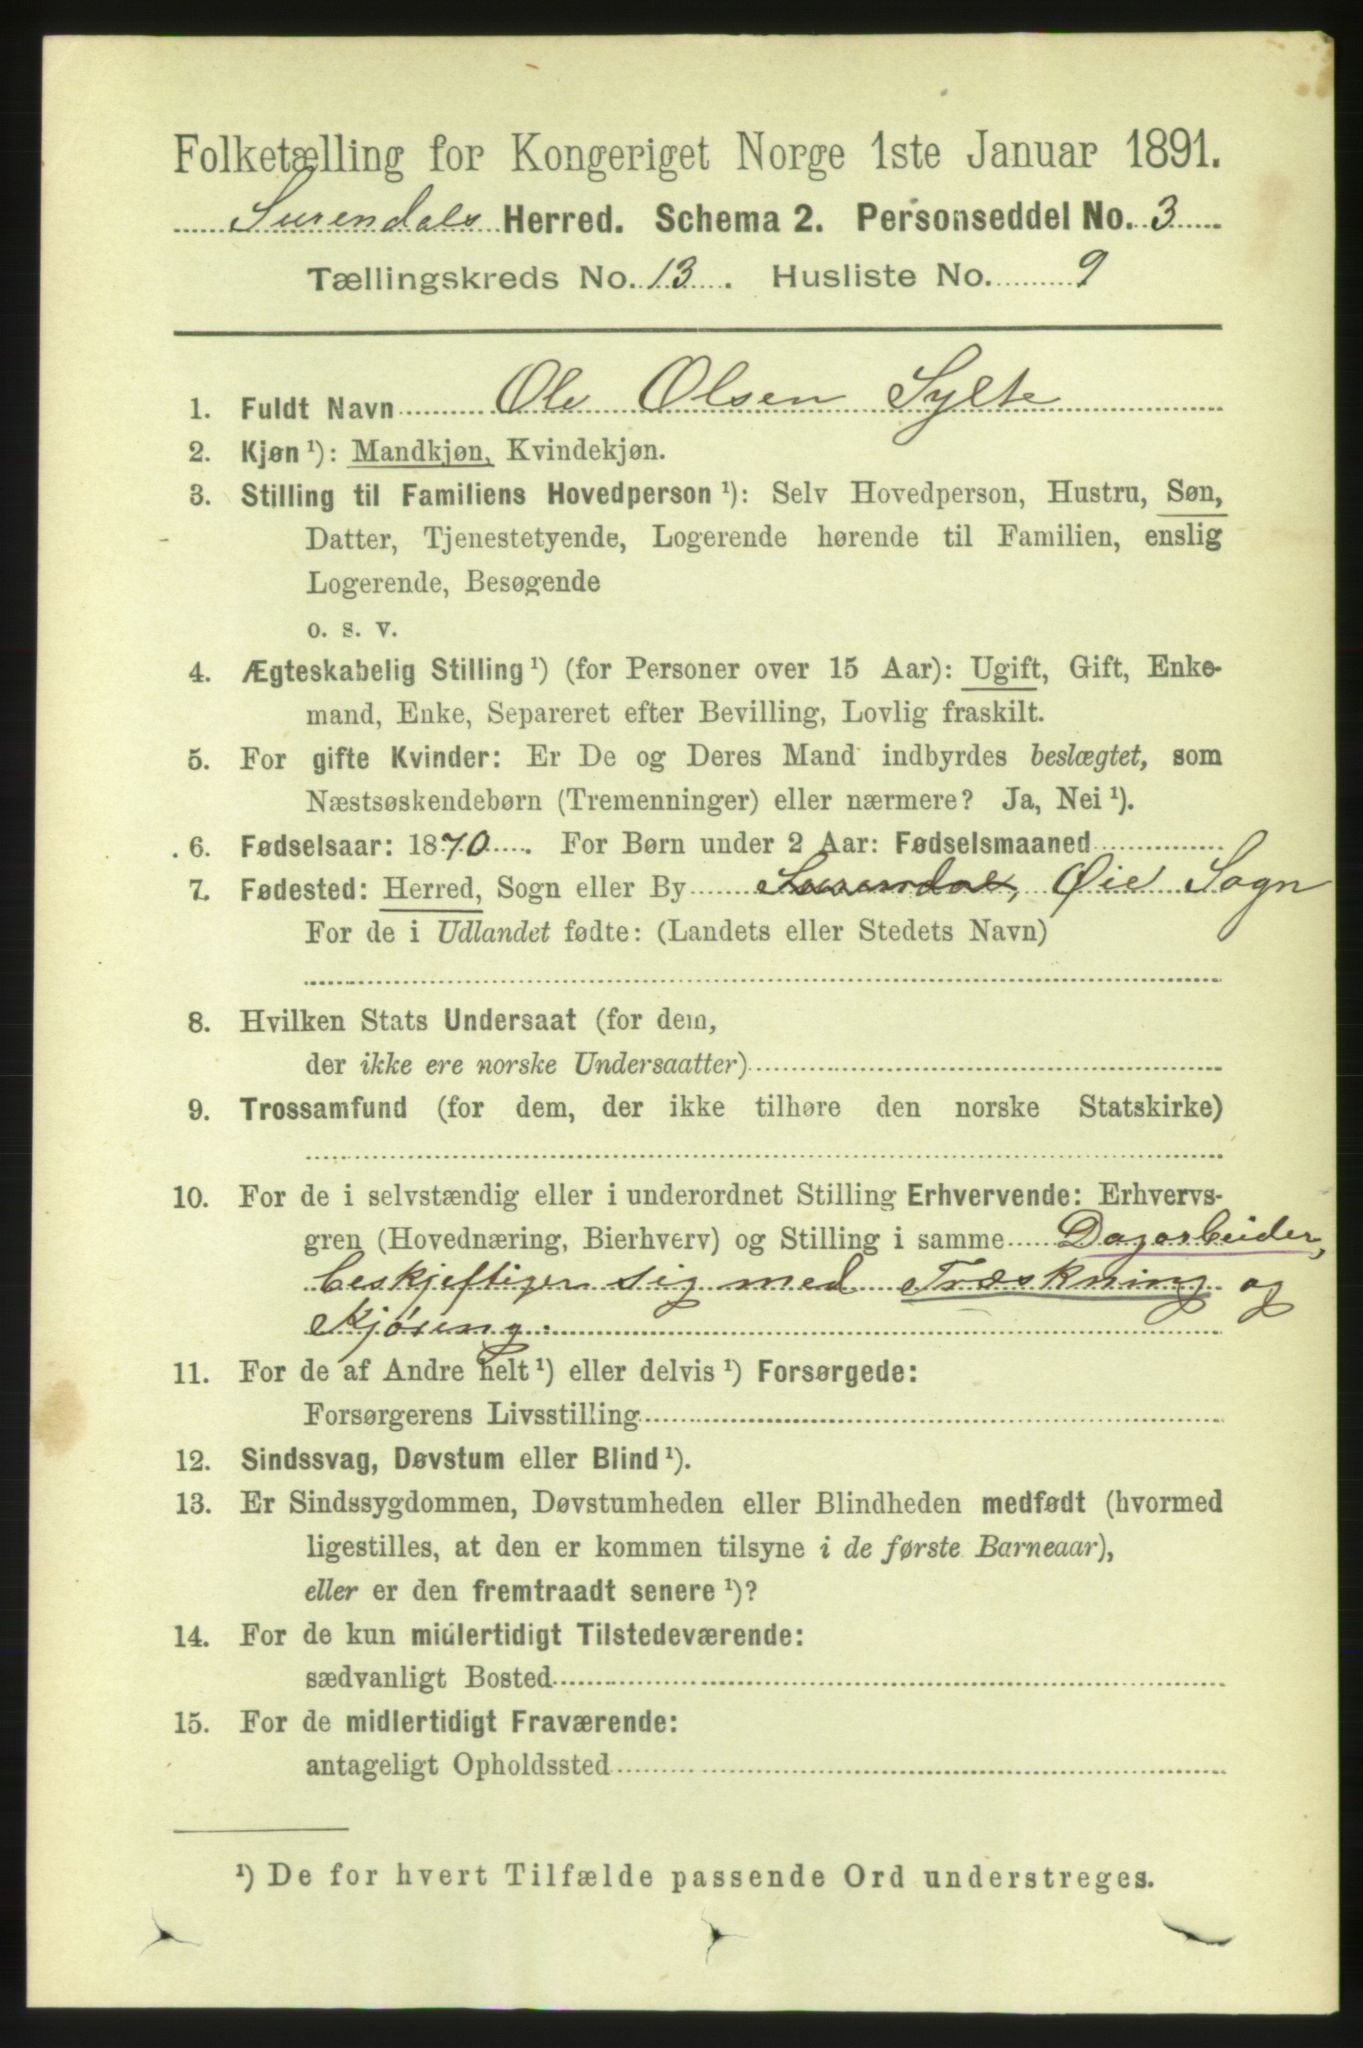 Folketælling for Kongeriget Norge 1ste Januar 1891.
Surendals Herred. Schema 2. Personseddel No. 3
Tællingskreds No. 13. Husliste No. 9
1. Fuldt Navn Ole Olsen Sylte
2. Kjøn¹): Mandkjøn, Kvindekjøn.
3. Stilling til Familiens Hovedperson¹): Selv Hovedperson, Hustru, Søn,
Datter, Tjenestetyende, Logerende hørende til Familien, enslig
Logerende, Besøgende
o. s. v.
4. Ægteskabelig Stilling¹) (for Personer over 15 Aar): Ugift, Gift, Enke-
mand, Enke, Separeret efter Bevilling, Lovlig fraskilt.
5. For gifte Kvinder: Er De og Deres Mand indbyrdes beslægtet, som
Næstsøskendebørn (Tremenninger) eller nærmere? Ja, Nei¹).
6. Fødselsaar: 1870. For Børn under 2 Aar: Fødselsmaaned
7. Fødested: Herred, Sogn eller By Surendal, Øie Sogn
For de i Udlandet fødte: (Landets eller Stedets Navn)
8. Hvilken Stats Undersaat (for dem,
der ikke ere norske Undersaatter)
9. Trossamfund (for dem, der ikke tilhøre den norske Statskirke)
10. For de i selvstændig eller i underordnet Stilling Erhvervende: Erhvervs-
gren (Hovednæring, Bierhverv) og Stilling i samme Dagarbeider,
beskjeftiger sig med Træskning og
Kjøring.
11. For de af Andre helt¹) eller delvis¹) Forsørgede:
Forsørgerens Livsstilling
12. Sindssvag, Døvstum eller Blind¹).
13. Er Sindssygdommen, Døvstumheden eller Blindheden medfødt (hvormed
ligestilles, at den er kommen tilsyne i de første Barneaar),
eller er den fremtraadt senere¹)?
14. For de kun midlertidigt Tilstedeværende:
sædvanligt Bosted
15. For de midlertidigt Fraværende:
antageligt Opholdssted
¹) De for hvert Tilfælde passende Ord understreges.